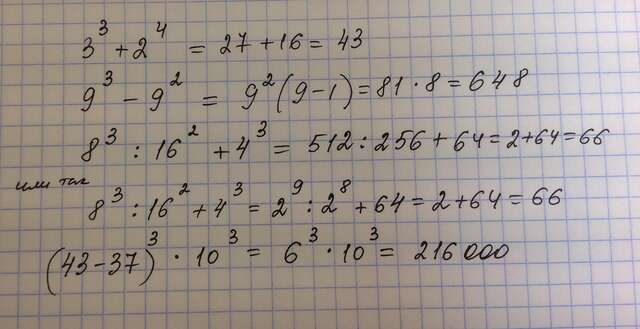 3³ + 2⁴ = 27 + 16 = 43
9³ - 9² = 9² (9 - 1) = 81 · 8 = 648
8³ : 16² + 4³ = 512 : 256 + 64 = 2 + 64 = 66
или так
8³ : 16² + 4³ = 2⁹ : 2⁸ + 64 = 2 + 64 = 66
(43 - 37)³ · 10³ = 6³ · 10³ = 216 000